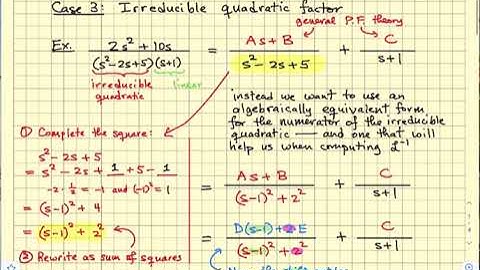 Case 3: Irreducible quadratic factor
general P.F. theory
Ex. 2s² + 10s / (s²-2s+5)(s+1) = As + B / s² - 2s + 5 + C / s+1
irreducible quadratic
linear
instead we want to use an
algebraically equivalent form
for the numerator of the irreducible
quadratic — and one that will
help us when computing ℒ⁻¹
① Complete the square:
s² - 2s + 5
= s² - 2s + 1 + 5 - 1
-2 · ½ = -1 and (-1)² = 1
= (s-1)² + 4
= (s-1)² + 2²
② Rewrite as sum of squares
= As + B / (s-1)² + 2² + C / s+1
= D(s-1) + 2E / (s-1)² + 2² + C / s+1